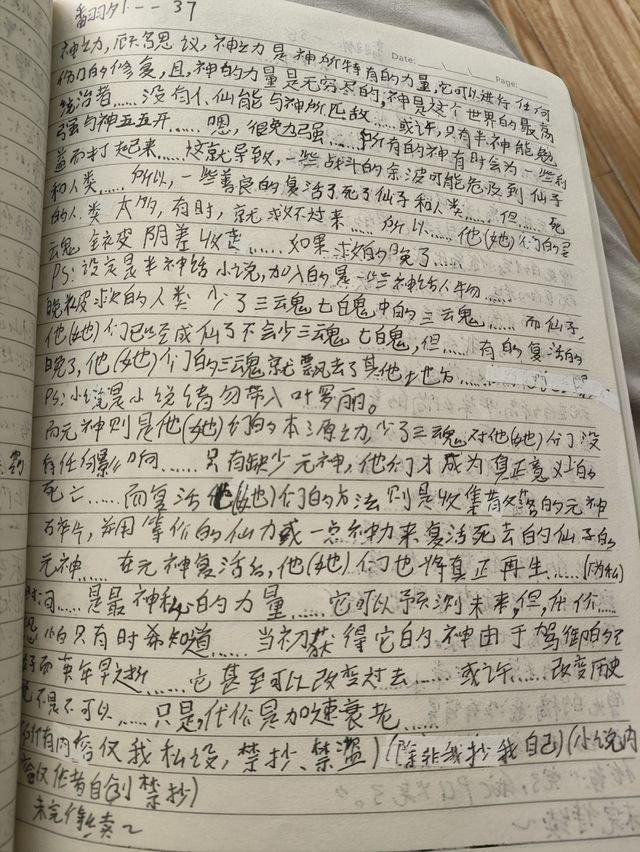 翻外--37
Date:
Page:
神之力,顾名思议,神之力是神所特有的力量,它可以进行任何
伤口的修复,且,神的力量是无穷尽的,神是这个世界的最高
统治者……没有仙能与神所匹敌……或许,只有半神能勉
强与神五五开……嗯,很免力强……所有的神有时会为一些利
益而打起来……这就导致,一些战斗的余波可能危及到仙子
和人类……所以,一些善良的复活了死了仙子和人类……但……死
的人类太多,有时,就救不过来……所以……他(她)们的灵
云鬼全被阴差收走……如果救的晚了……
PS:设定是半神话小说,加入的是一些神话人物……
晚被救的人类少了三魂七魄中的三魂……而仙子,
他(她)们已经成仙了不会少三魂七魄,但……有的复活的
晚了,他(她)们的三魂就飘去了其他土地方
PS:小说是小说请勿带入叶罗丽。
而元神则是他(她)们的本源之力,少了三魂对他(她)们没
有任何影响……只有缺少元神,他们才成为真正意义的
死亡……而复活他(她)们的方法则是收集散落的元神
碎片,并用等价的仙力或一点神力来复活死去的仙子的
元神……在元神复活后,他(她)们也将真正再生……(内私)
时间……是最神秘的力量……它可以预测未来,但,代价……
恐怕只有时希知道……当初获得它的神由于驾御的
而英年早折……它甚至可以改变过去……或许……改变历史
也不是不可以……只是,代价是加速衰老……
(所有内容仅我私设,禁抄、禁盗)(除非我抄我自己)(小说内
容仅作者自创禁抄)
未完待续~